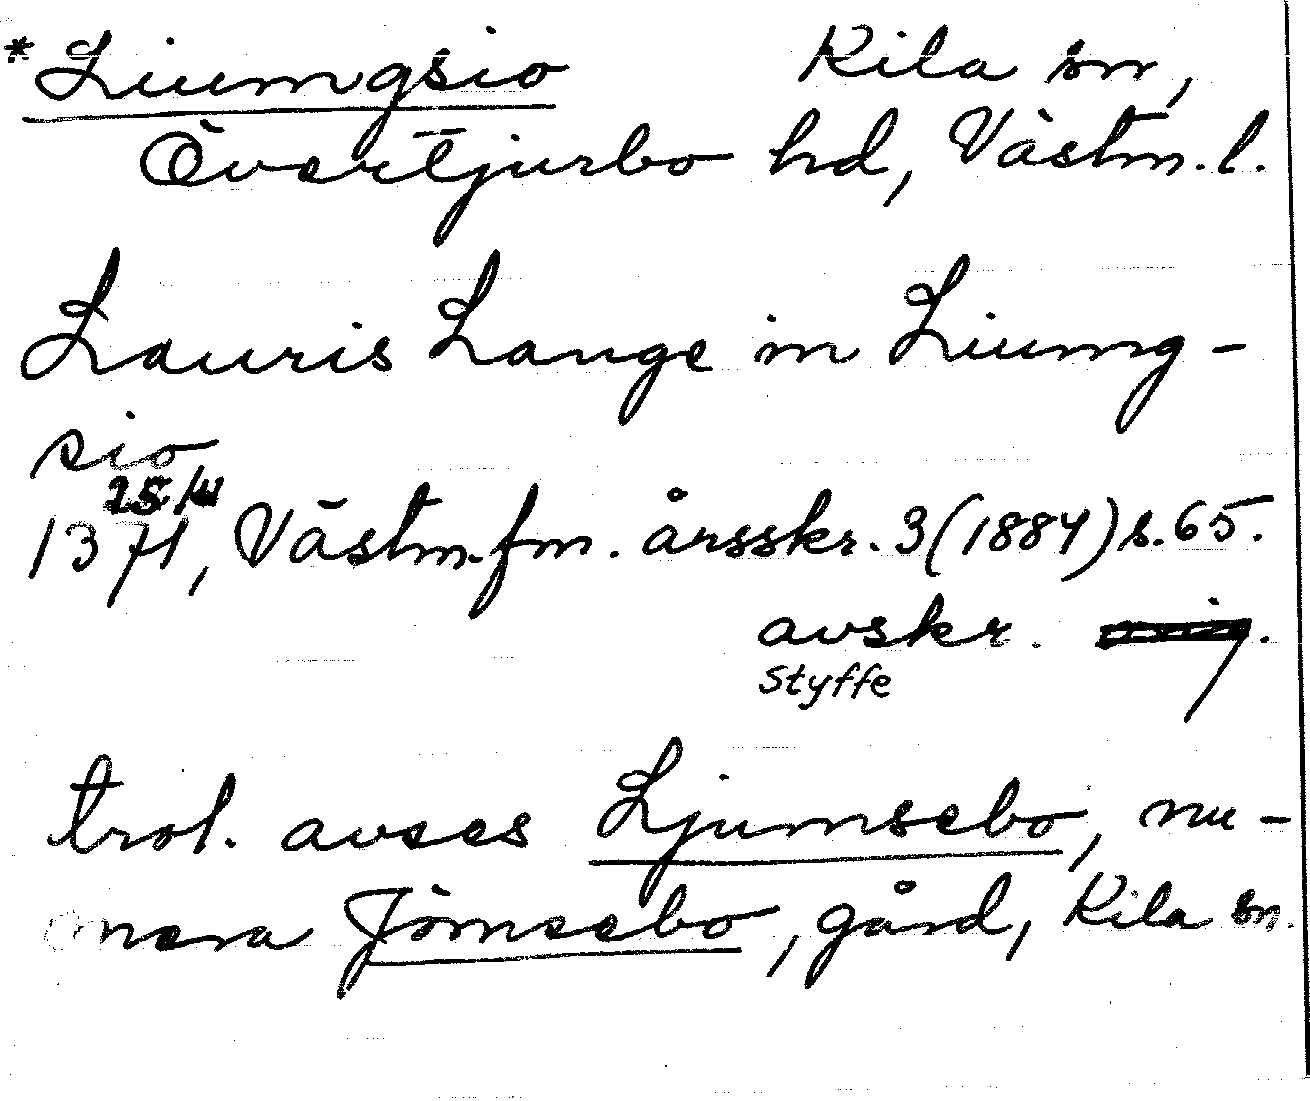 *Liumgsio Kila sn,
Övertjurbo hd, Västm. l.
Lauris Lange in Liumg-
sio
25/4
1371, Västm. fm. årsskr. 3 (1884) s. 65.
avskr.
Styffe
trol. avses Ljumsebo, nu-
mera Jömsebo, gård, Kila sn.